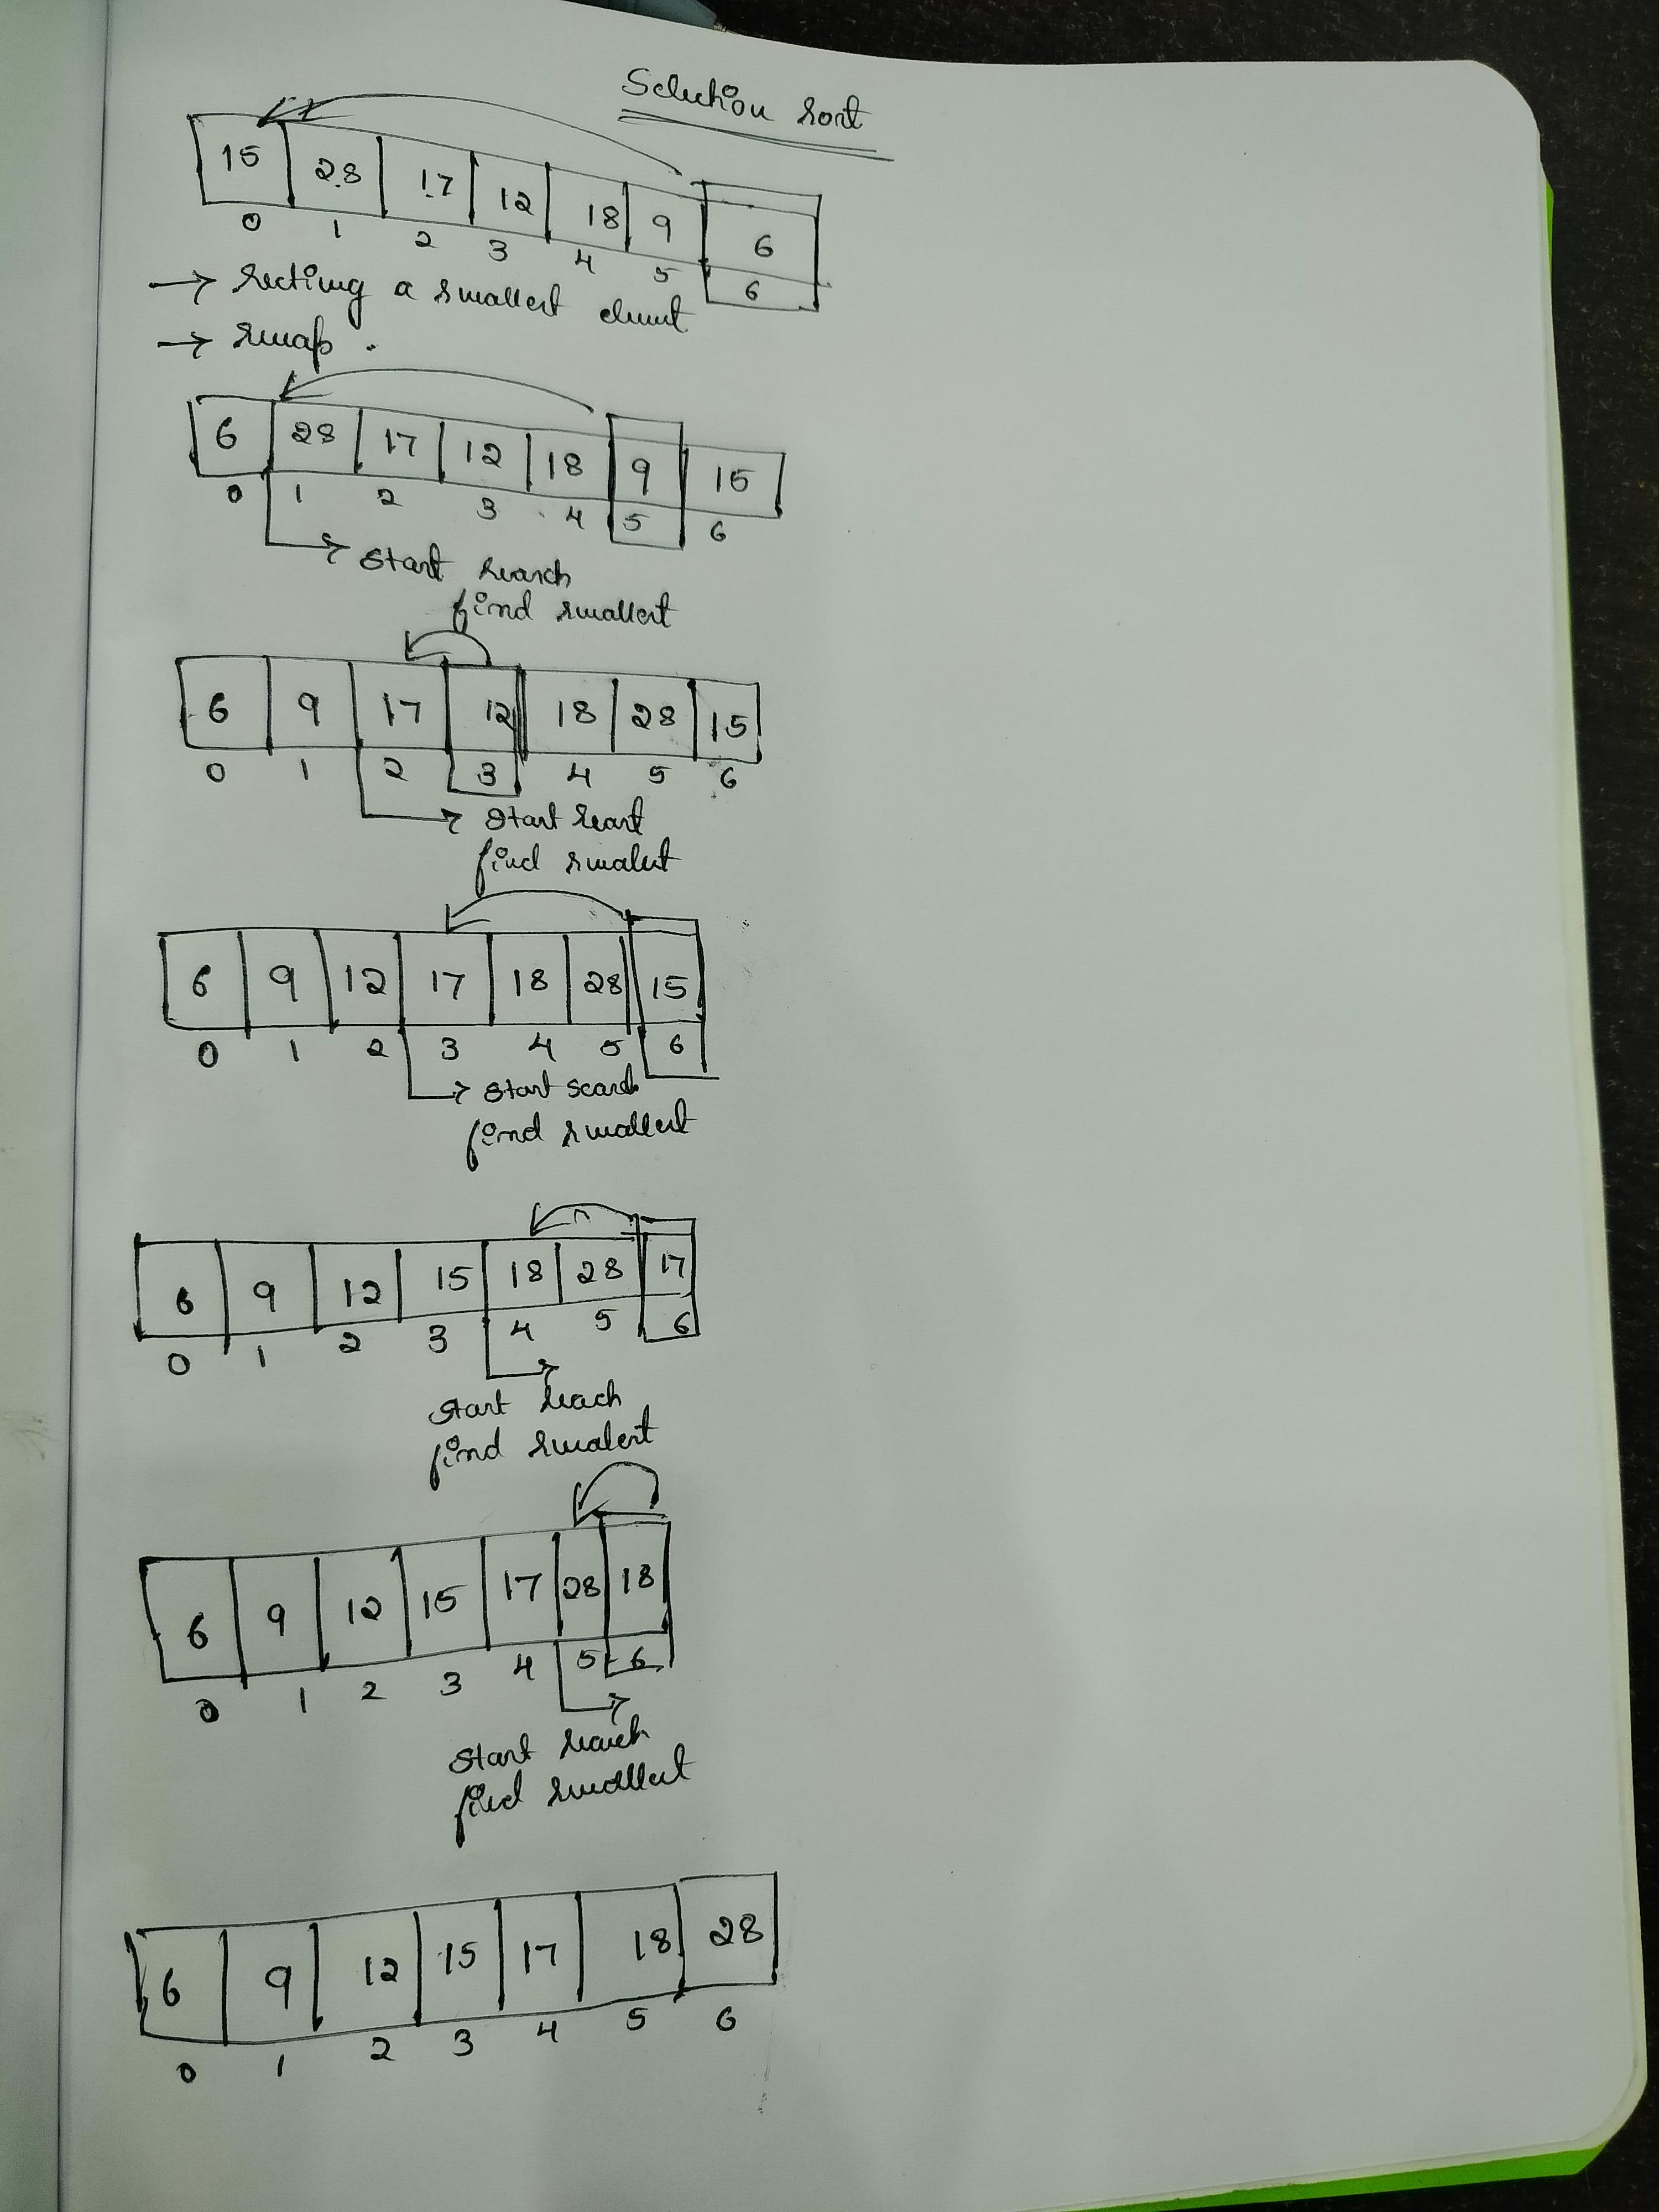 Selection sort
15 28 17 12 18 9 6
0 1 2 3 4 5 6
→ a smallest
→ swap.
6 28 17 12 18 9 15
0 1 2 3 4 5 6
→ start search
find smallest
6 9 17 12 18 28 15
0 1 2 3 4 5 6
→ start
find smalest
6 9 12 17 18 28 15
0 1 2 3 4 5 6
→ start search
find smallest
6 9 12 15 18 28 17
0 1 2 3 4 5 6
start
find smalest
6 9 12 15 17 28 18
0 1 2 3 4 5 6
start search
find smallest
6 9 12 15 17 18 28
0 1 2 3 4 5 6